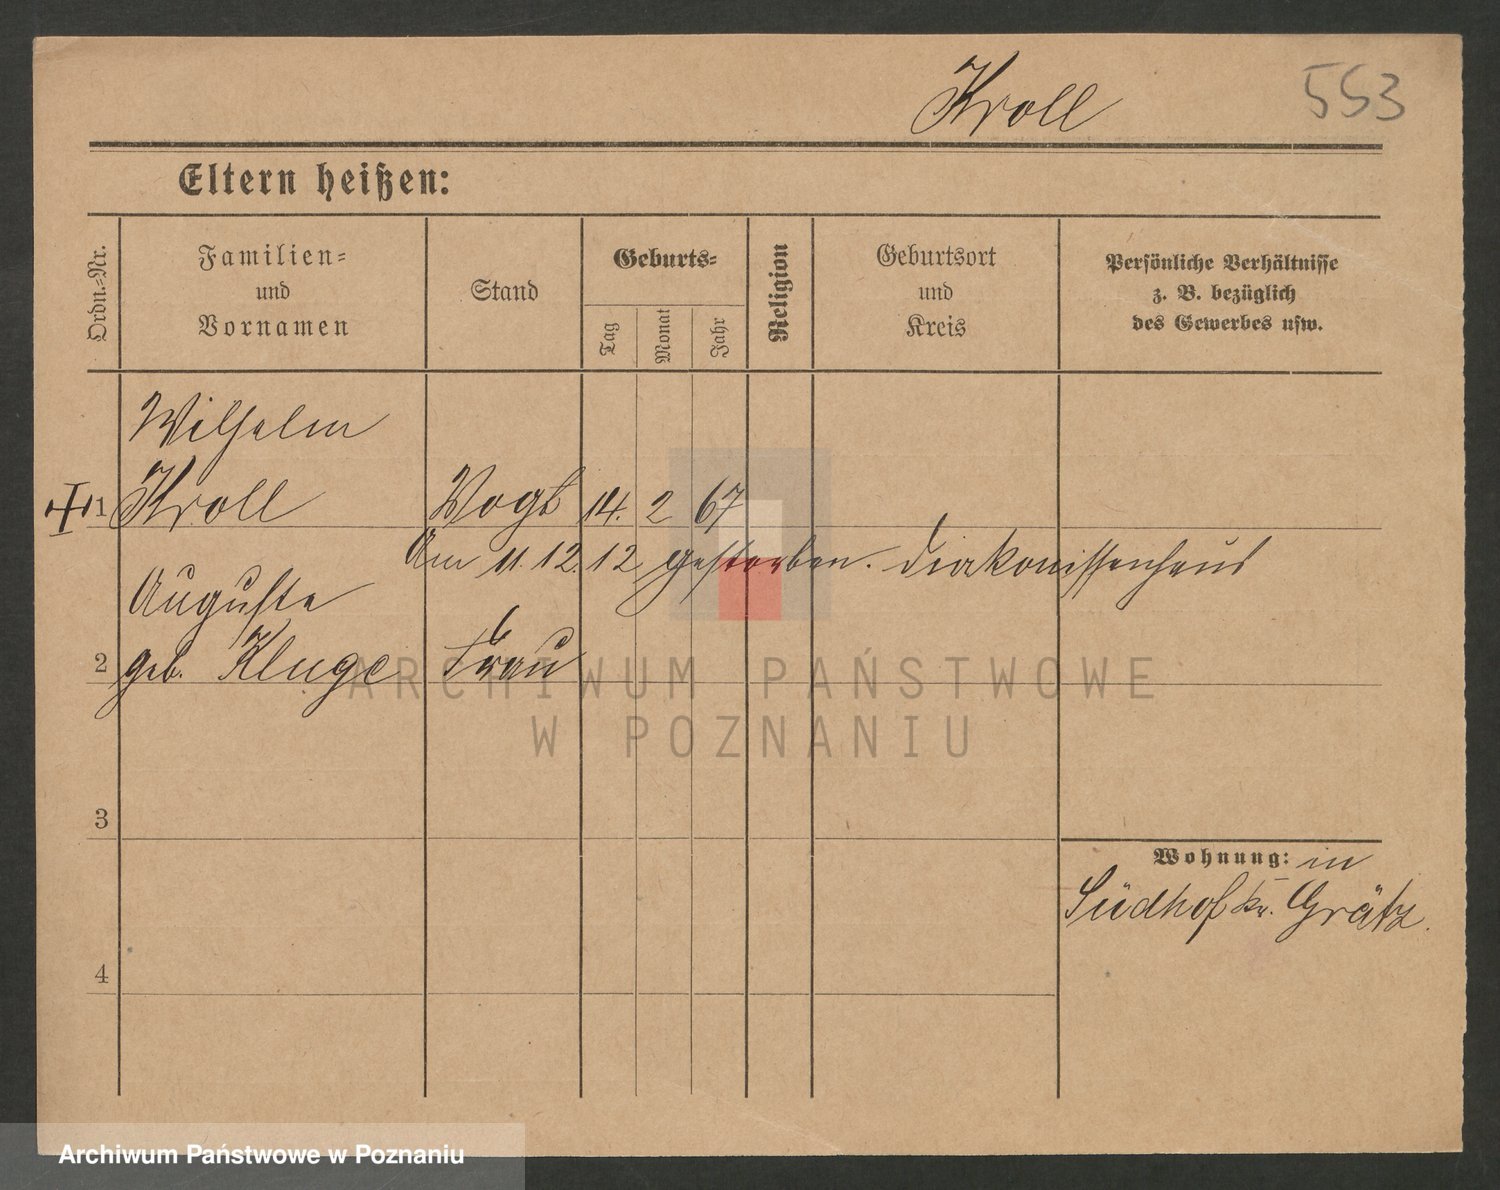 Kroll
553
Eltern heißen:
Ordn.-Nr.
Familien-
und
Vornamen
Stand
Geburts-
Tag
Monat
Jahr
Religion
Geburtsort
und
Kreis
Persönliche Verhältnisse
z. B. bezüglich
des Gewerbes usw.
Wilhelm
1 Kroll Vogt 14. 2 67
Am 11.12.12 gestorben. Diakonissenhaus
Auguste
2 geb. Kluge Frau
ARCHIWUM PAŃSTWOWE
W POZNANIU
3
Wohnung: in
Südhof Kr. Grätz.
4
Archiwum Państwowe w Poznaniu